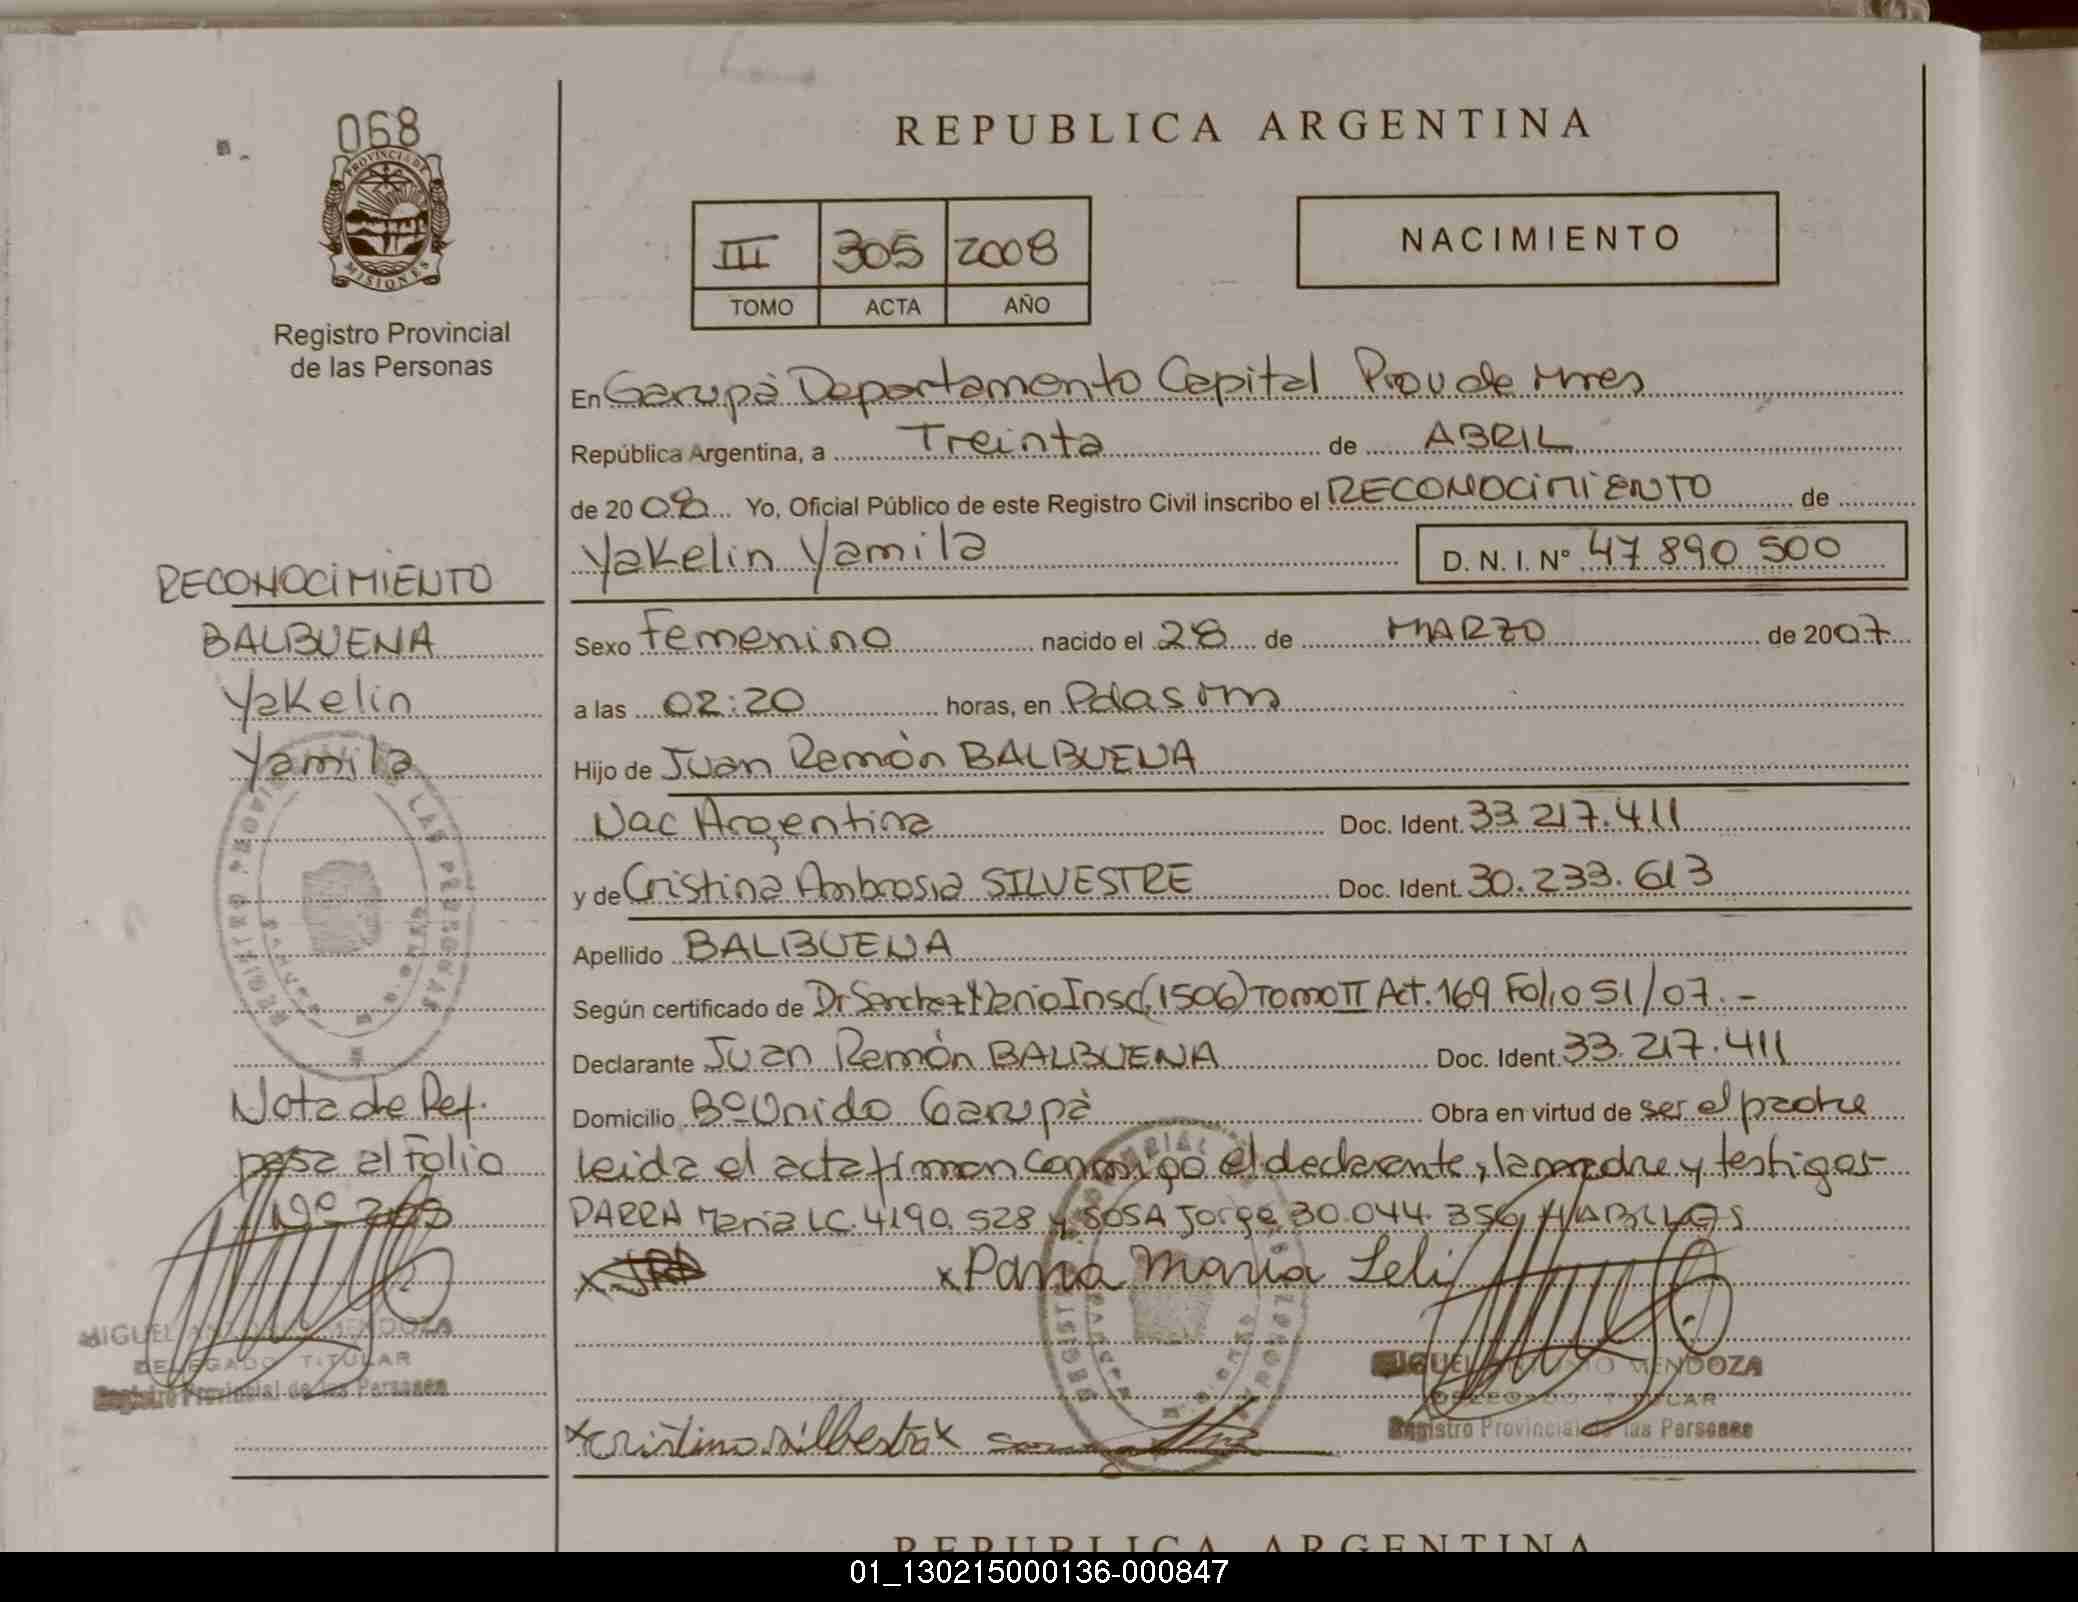 068
PROVINCIA DE
MISIONES
Registro Provincial
de las Personas
REPUBLICA ARGENTINA
III 305 2008
TOMO ACTA AÑO
NACIMIENTO
En Garupà Departamento Capital Prov de Mnes
República Argentina, a Treinta de ABRIL
de 2008 Yo, Oficial Público de este Registro Civil inscribo el RECONOCIMIENTO de
Yakelin Yamila D. N. I. Nº 47 890 500
Sexo Femenino nacido el 28 de MARZO de 2007
a las 02:20 horas, en Pdas Mns
Hijo de Juan Ramòn BALBUENA
Nac Argentina Doc. Ident. 33.217.411
y de Cristina Ambrosia SILVESTRE Doc. Ident. 30.233.613
Apellido BALBUENA
Según certificado de Dr Sanchez Mario Insc(1506) Tomo II Act. 169 Folio 51/07.-
Declarante Juan Ramòn BALBUENA Doc. Ident. 33.217.411
Domicilio Bº Unido Garupà Obra en virtud de ser el padre
leida el acta firman conmigo el declarante, la madre y testigos
PARRA Maria LC. 4190.528 y SOSA Jorge 30.044.356 HABILES
x Parra Maria Leli
MIGUEL ANTONIO MENDOZA
DELEGADO TITULAR
Registro Provincial de las Personas
x cristina silbestre x
RECONOCIMIENTO
BALBUENA
Yakelin
Yamila
REGISTRO PROVINCIAL DE LAS PERSONAS
Nota de Ref.
pasa al Folio
Nº
MIGUEL ANTONIO MENDOZA
DELEGADO TITULAR
Registro Provincial de las Personas
REPUBLICA ARGENTINA
01_130215000136-000847